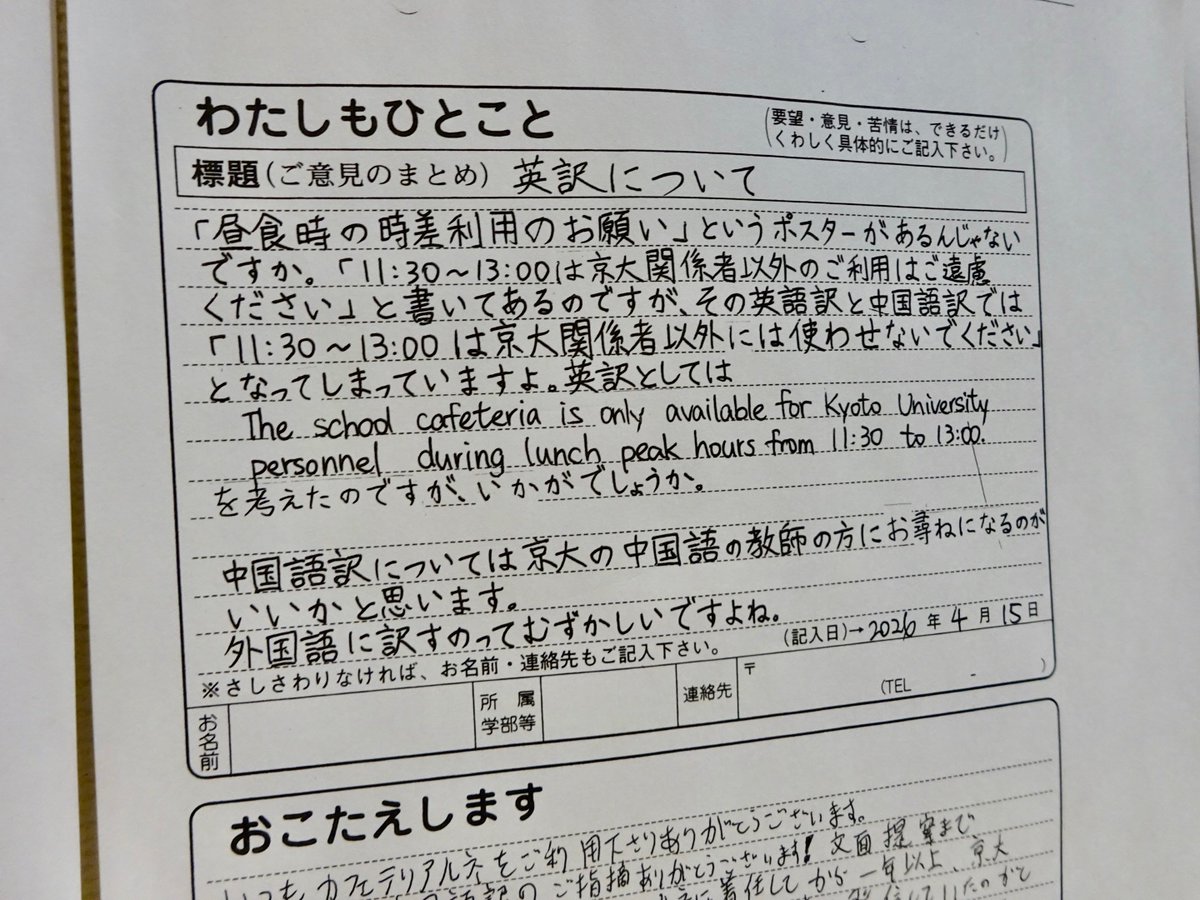 わたしもひとこと
(要望・意見・苦情は、できるだけ
くわしく具体的にご記入下さい。)
標題(ご意見のまとめ) 英訳について
「昼食時の時差利用のお願い」というポスターがあるんじゃない
ですか。「11:30～13:00は京大関係者以外のご利用はご遠慮
ください」と書いてあるのですが、その英語訳と中国語訳では
「11:30～13:00は京大関係者以外には使わせないでください」
となってしまっていますよ。英訳としては
The school cafeteria is only available for Kyoto University
personnel during lunch peak hours from 11:30 to 13:00.
を考えたのですが、いかがでしょうか。
中国語訳については京大の中国語の教師の方にお尋ねになるのが
いいかと思います。
外国語に訳すのってむずかしいですよね。
(記入日)→2026年4月15日
※さしさわりなければ、お名前・連絡先もご記入下さい。
お名前
所属
学部等
連絡先
〒
(TEL - )
おこたえします
いつもカフェテリアルネをご利用下さりありがとうございます。
のご指摘ありがとうございます!文面提案まで
に着任してから一年以上、京大